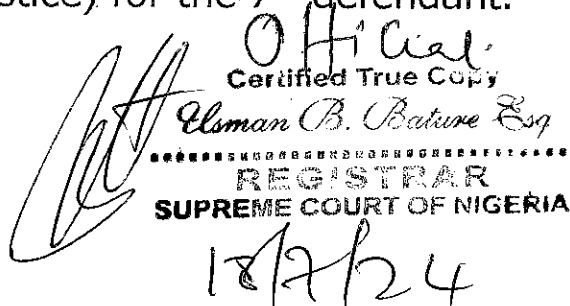 for the 7 defendant.
Official.
Certified True Copy
Usman B. Bature Esq
REGISTRAR
SUPREME COURT OF NIGERIA
18/7/24